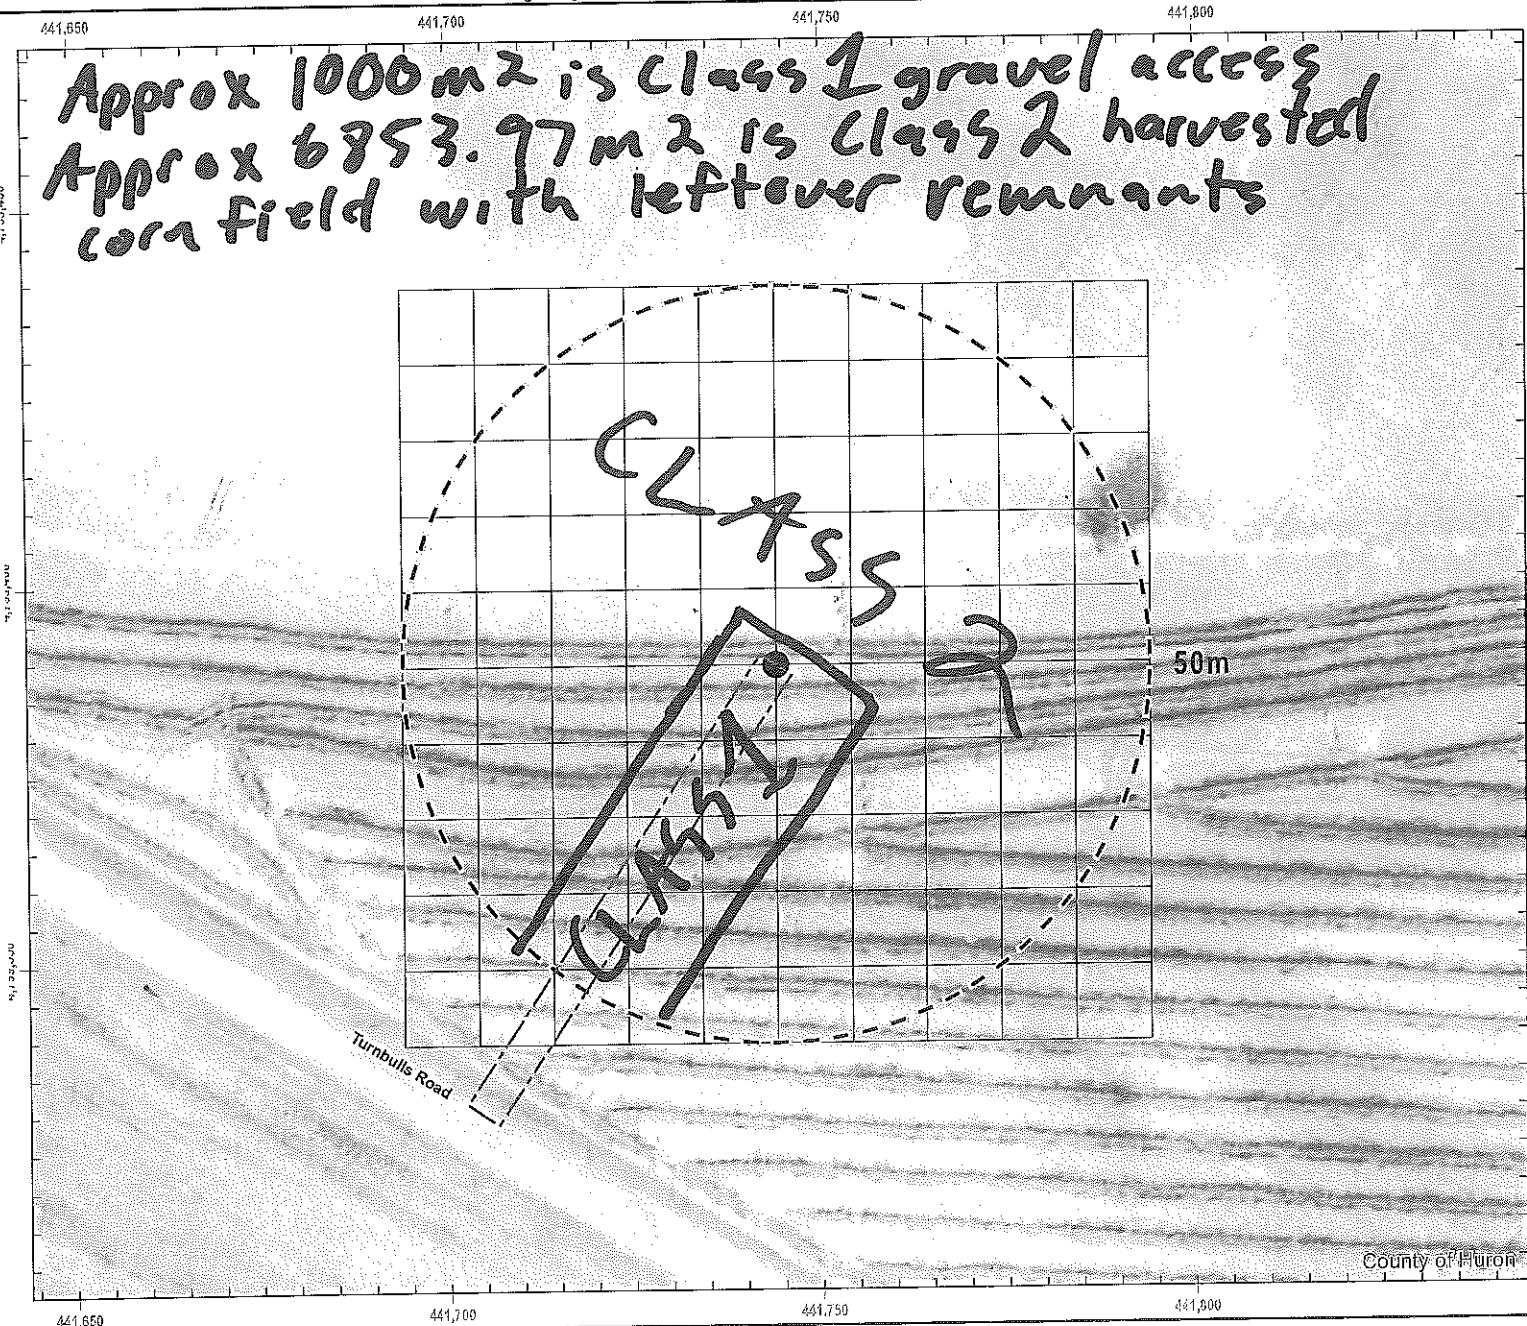 441,650 441,700 441,750 441,800
Approx 1000m2 is Class 1 gravel access
Approx 6853.97m2 is Class 2 harvested
corn field with leftover remnants
CLASS 2
50m
CLASS 1
Turnbulls Road
County of Huron
441,650 441,700 441,750 441,800